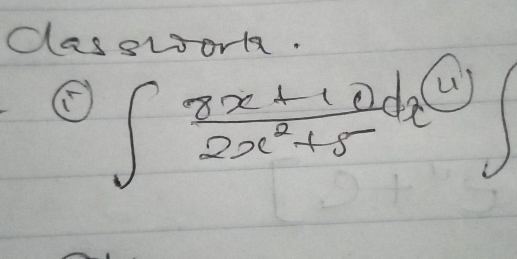 Classwork.
(i) ∫ (8x + 10)/(2x² + 5) dx (ii) ∫